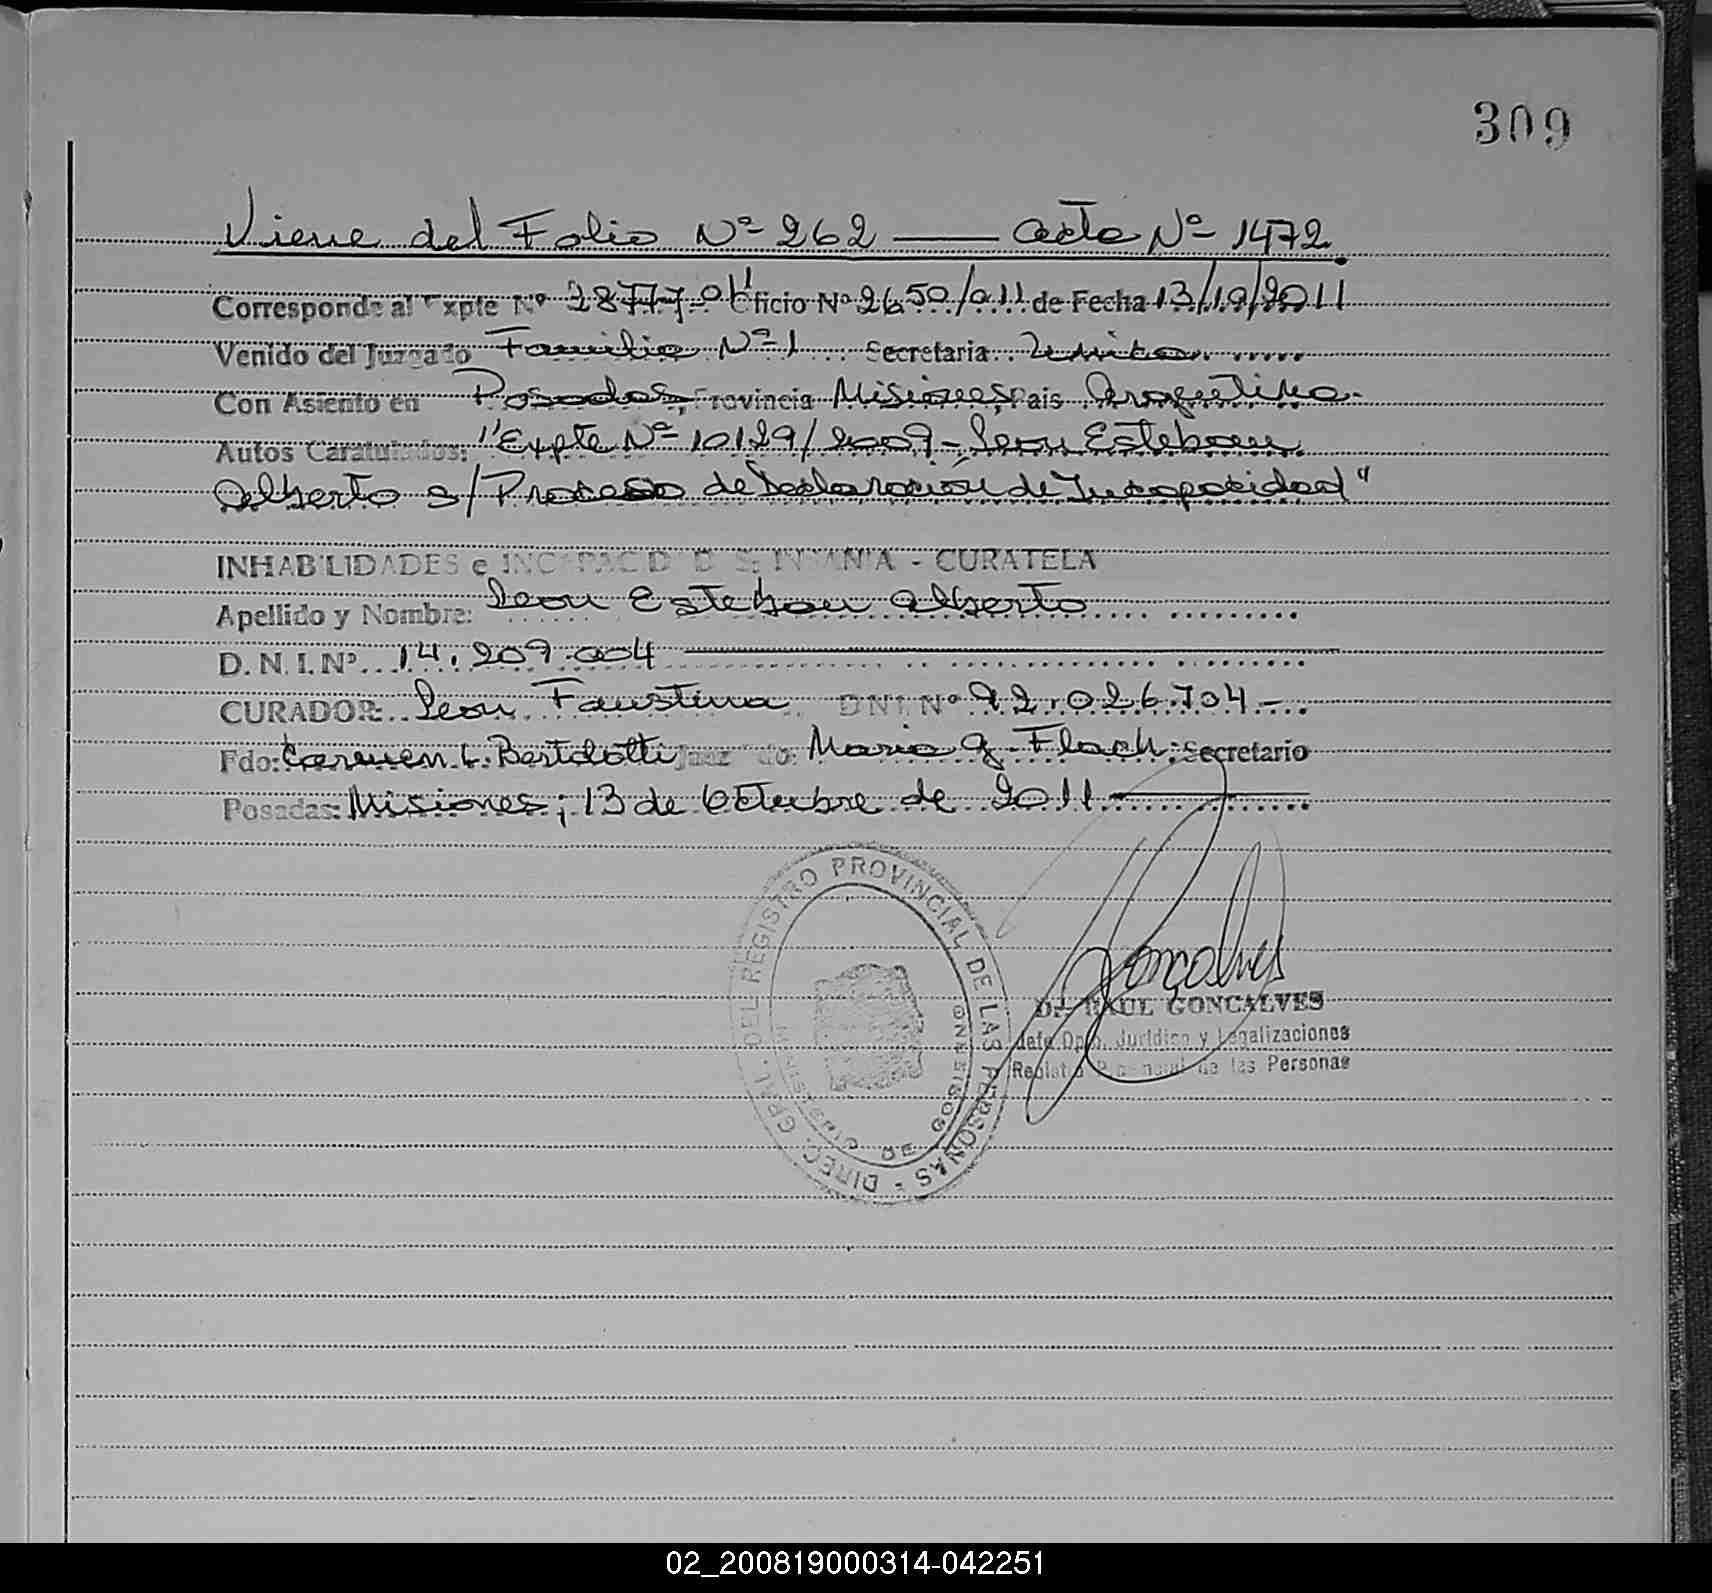 309
Viene del Folio Nº 262 — Acta Nº 1472.
Corresponde al Expte Nº 28777-O" Oficio Nº 2650/011 de Fecha 13/10/2011
Venido del Juzgado Familia Nº 1 Secretaria Unica
Con Asiento en Posadas, Provincia Misiones, Pais Argentina.
Autos Caratulados: "Expte Nº 10129/2009 - Leon Esteban
Alberto s/ Proceso de Declaración de Incapacidad"
INHABILIDADES e INCAPACIDADES INSANIA - CURATELA
Apellido y Nombre: Leon Esteban Alberto
D.N.I.Nº 14.209.004
CURADOR: Leon Faustina DNI Nº 92.026.704 -
Fdo: Carmen L. Bertolotti Juez Fdo: Mario G. Flach: Secretario
Posadas: Misiones; 13 de Octubre de 2011
DIREC. GRAL. DEL REGISTRO PROVINCIAL DE LAS PERSONAS -
MINISTERIO DE GOBIERNO
Goncalves
Dr. RAUL GONCALVES
Jefe Dpto. Jurídico y Legalizaciones
Registro Provincial de las Personas
02_200819000314-042251